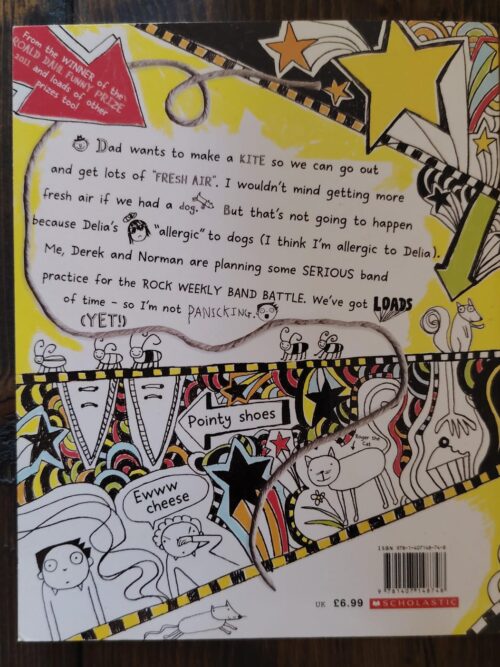 From the WINNER of the
ROALD DAHL FUNNY PRIZE
2011 and loads of other
prizes too!
Dad wants to make a KITE so we can go out
and get lots of "FRESH AIR". I wouldn't mind getting more
fresh air if we had a dog. But that's not going to happen
because Delia's "allergic" to dogs (I think I'm allergic to Delia).
Me, Derek and Norman are planning some SERIOUS band
practice for the ROCK WEEKLY BAND BATTLE. We've got LOADS
of time - so I'm not PANICKING.
(YET!)
Pointy shoes
Ginger the
Cat
Ewww
cheese
ISBN 978-1-407148-74-8
9 781407 148748
UK £6.99 SCHOLASTIC